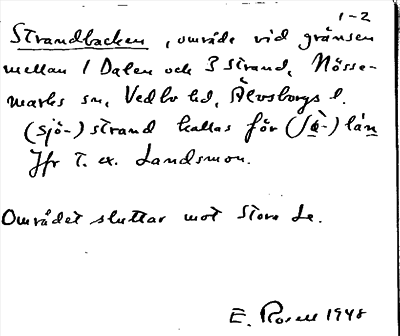 1-2
Strandbacken, område vid gränsen
mellan 1 Dalen och 3 Strand, Nösse-
marks sn, Vedbo hd, Älvsborgs l.
(sjö-) strand kallas för (sɑ̀-) lán
Jfr t. ex. Landsmon.
Området sluttar mot Stora Le.
E. Rosell 1948